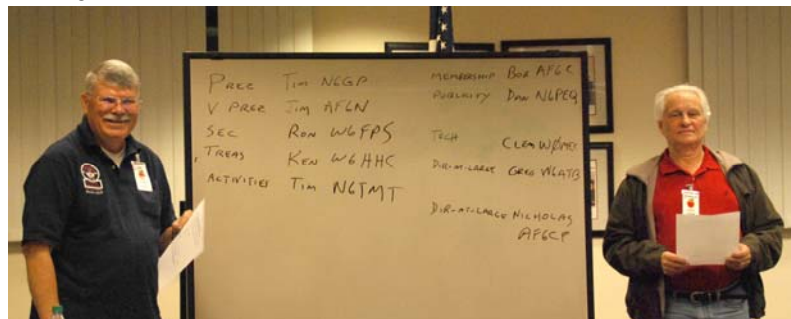 PREZ TIM N6GP
V PREZ JIM AF6N
SEC RON W6FPS
TREAS KEN W6HHC
ACTIVITIES TIM N6TMT
MEMBERSHIP BOB AF6C
PUBLICITY DAN N6PEQ
TECH CLEM WØMEC
DIR-AT-LARGE GREG W6ATB
DIR-AT-LARGE NICHOLAS
AF6CF